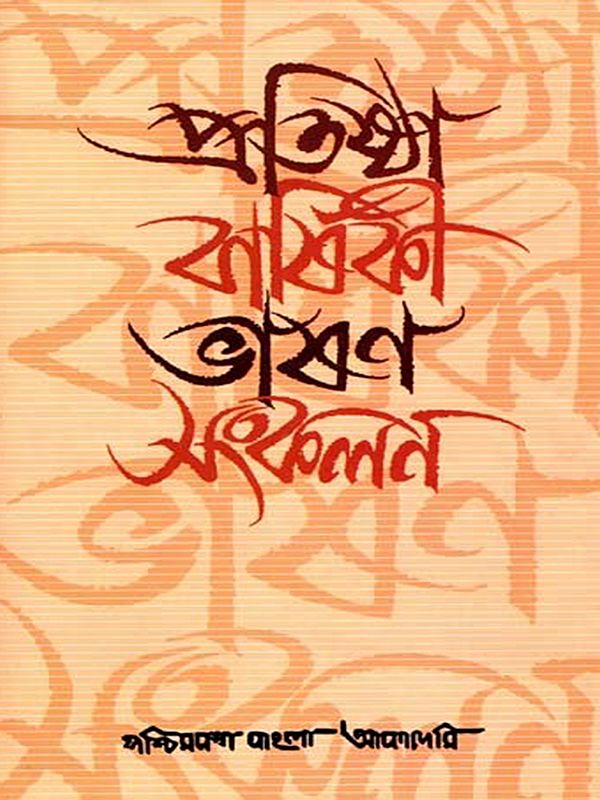 প্রতিষ্ঠা
বার্ষিকী
ভাষণ
সংকলন
পশ্চিমবঙ্গ বাংলা আকাদেমি